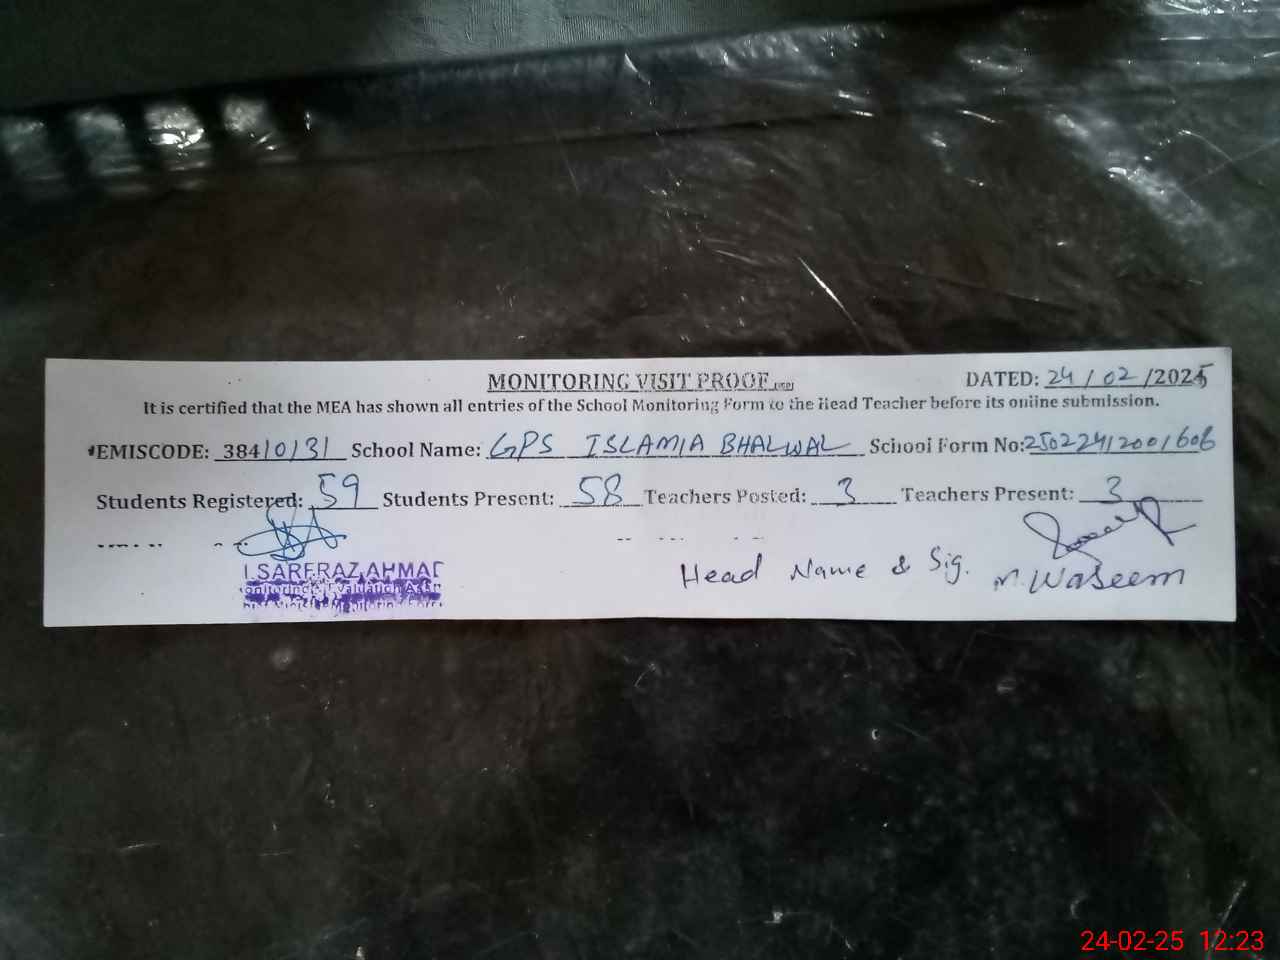 MONITORING VISIT PROOF
DATED: 24 / 02 /2025
It is certified that the MEA has shown all entries of the School Monitoring Form to the Head Teacher before its online submission.
EMISCODE: 38410131 School Name: GPS ISLAMIA BHALWAL School Form No:25022412001606
Students Registered: 59 Students Present: 58 Teachers Posted: 3 Teachers Present: 3
SARFRAZ AHMAD
Head Name & Sig. M. Waseem
24-02-25 12:23